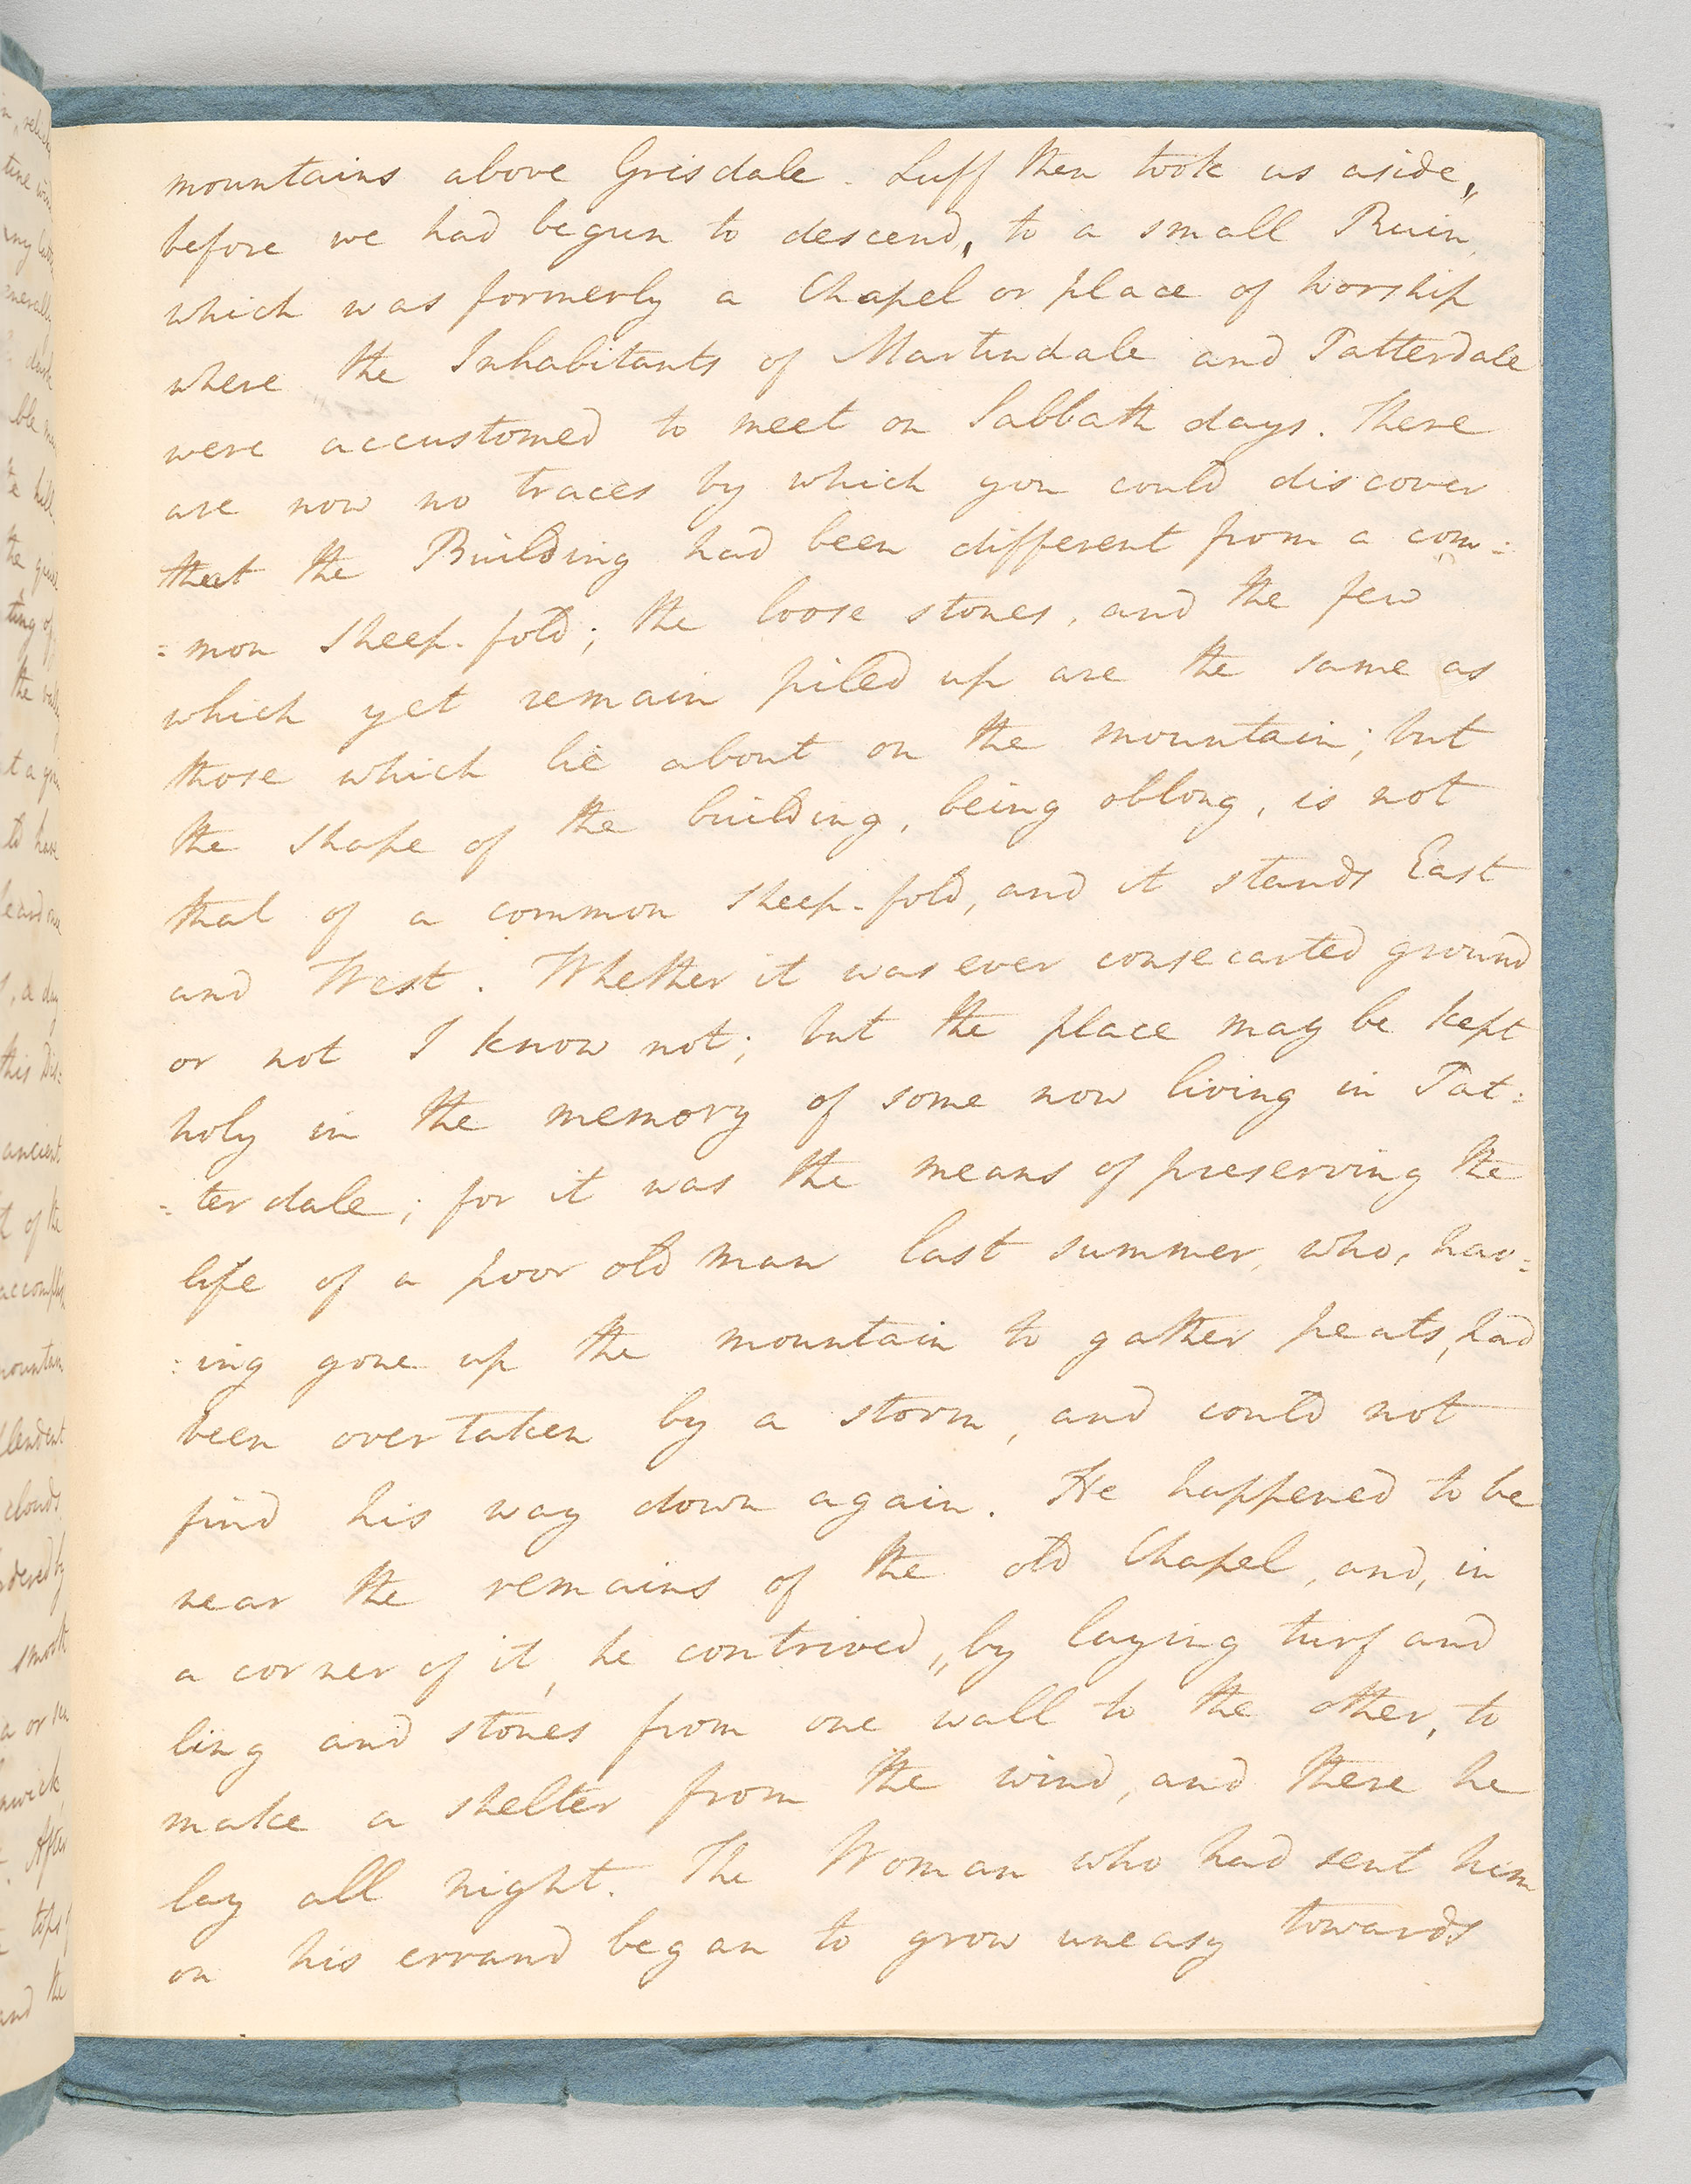 mountains above Grisdale. Luff then took us aside,,
before we had begun to descend, to a small Ruin,
which was formerly a Chapel or place of worship
where the Inhabitants of Martindale and Patterdale
were accustomed to meet on Sabbath days. There
are now no traces by which you could discover
that the Building had been different from a com:
=mon sheep-fold; the loose stones, and the few
which yet remain piled up are the same as
those which lie about on the mountain; but
the shape of the building, being oblong, is not
that of a common sheep-fold, and it stands East
and West. Whether it was ever consecarted ground
or not I know not; but the place may be kept
holy in the memory of some now living in Pat:
=terdale; for it was the means of preserving the
life of a poor old man last summer, who, hav:
:ing gone up the mountain to gather peats, had
been overtaken by a storm, and could not
find his way down again. He happened to be
near the remains of the old Chapel, and, in
a corner of it, he contrived,, by laying turf and
ling and stones from one wall to the other, to
make a shelter from the wind, and there he
lay all night. The Woman who had sent him
on his errand began to grow uneasy towards